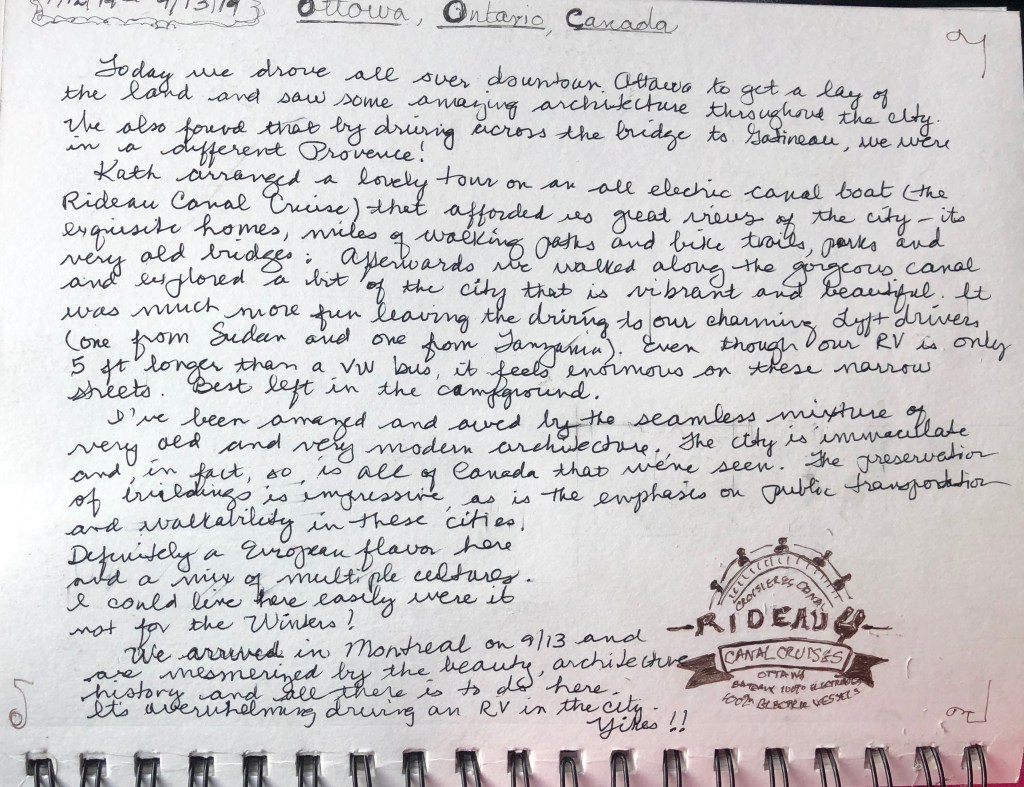 9/13/19
Ottowa, Ontario, Canada
Today we drove all over downtown Ottawa to get a lay of
the land and saw some amazing architecture throughout the city.
We also found that by driving across the bridge to Gatineau, we were
in a different Provence!
Kath arranged a lovely tour on an all electric canal boat (the
Rideau Canal Cruise) that afforded us great views of the city – its
exquisite homes, miles of walking paths and bike trails, parks and
very old bridges. Afterwards we walked along the gorgeous canal
and explored a bit of the city that is vibrant and beautiful. It
was much more fun leaving the driving to our charming Lyft drivers
(one from Sudan and one from Tanzania). Even though our RV is only
5 ft longer than a VW bus, it feels enormous on these narrow
streets. Best left in the campground.
I've been amazed and awed by the seamless mixture of
very old and very modern architecture. The city is immaculate
and, in fact, so is all of Canada that we've seen. The preservation
of buildings is impressive, as is the emphasis on public transportation
and walkability in these cities.
Definitely a European flavor here
and a mix of multiple cultures.
I could live here easily were it
not for the Winters!
We arrived in Montreal on 9/13 and
are mesmerized by the beauty, architecture
history and all there is to do here.
It's overwhelming driving an RV in the city.
Yikes!!
CROISIERES CANAL
RIDEAU
CANAL CRUISES
OTTAWA
BATEAUX 100%
100% ELECTRIC VESSELS